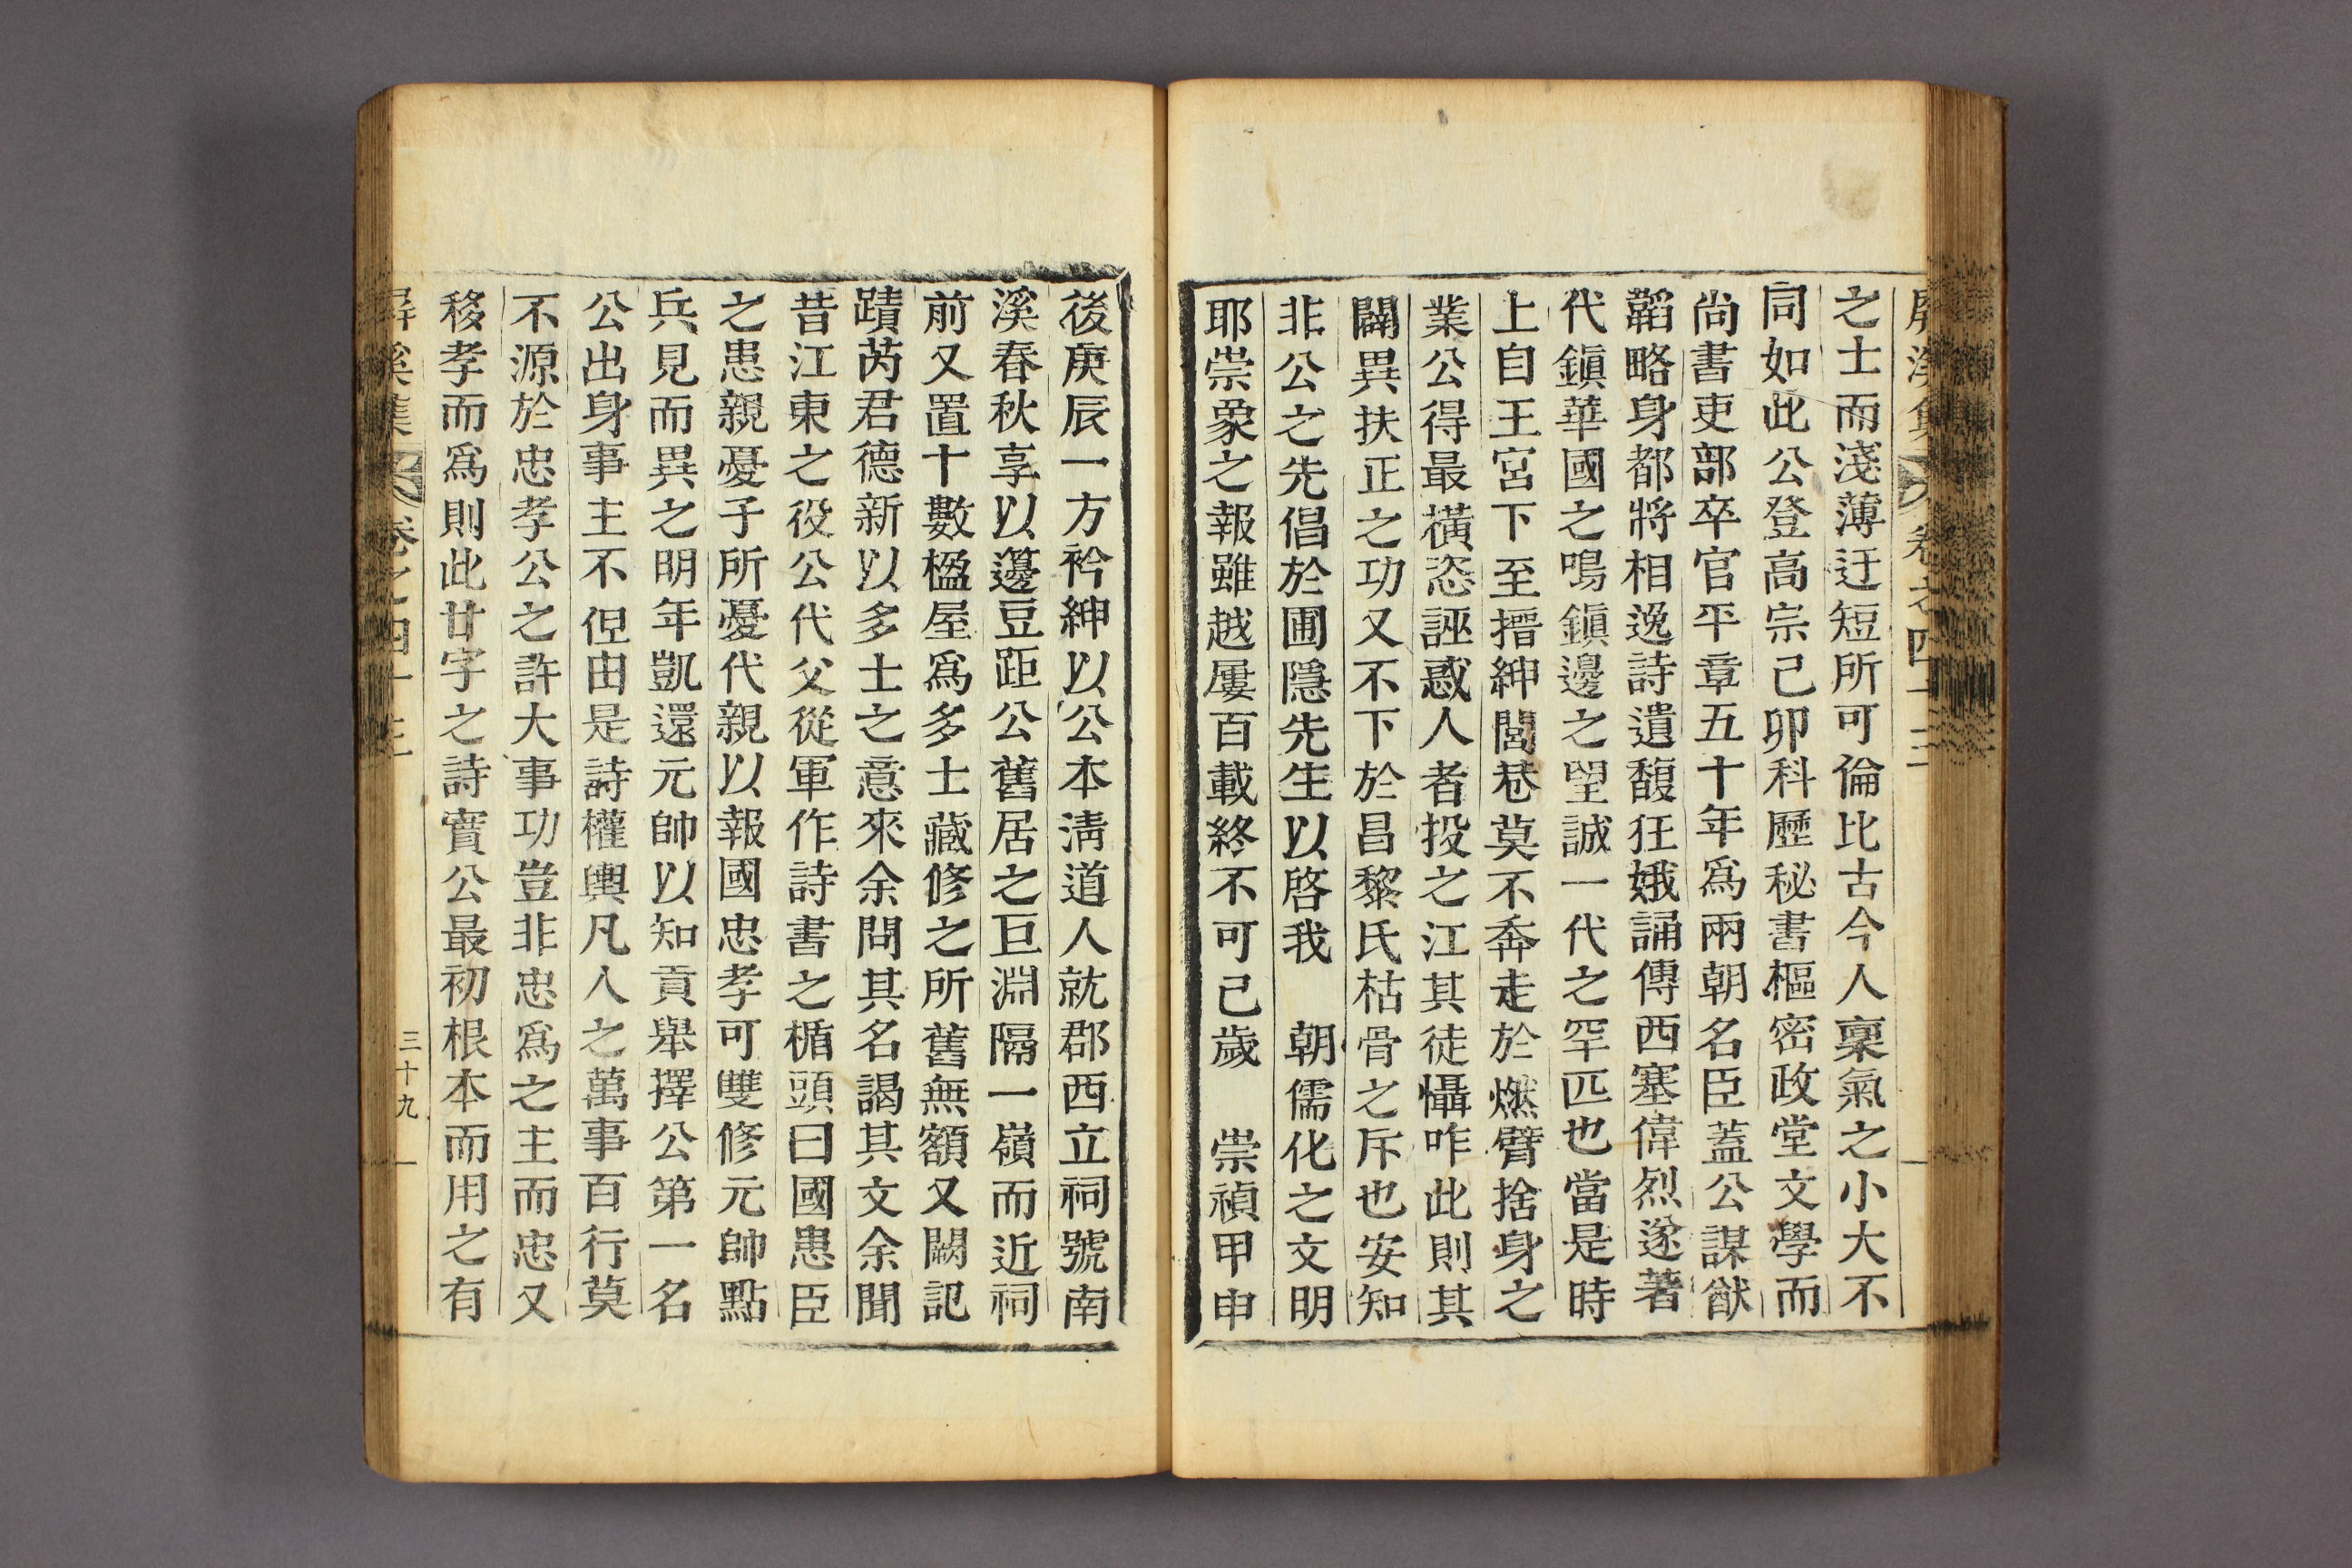 屛溪集 卷之四十三
之士而淺薄迂短所可倫比古今人稟氣之小大不
同如此公登高宗己卯科歷秘書樞密政堂文學而
尙書吏部卒官平章五十年爲兩朝名臣蓋公謀猷
韜略身都將相逸詩遺馥狂娥誦傳西塞偉烈遂著
代鎭華國之鳴鎭邊之望誠一代之罕匹也當是時
上自王宮下至搢紳閭巷莫不奔走於燃臂捨身之
業公得最橫恣誣惑人者投之江其徒懾咋此則其
闢異扶正之功又不下於昌黎氏枯骨之斥也安知
非公之先倡於圃隱先生以啓我 朝儒化之文明
耶崇象之報雖越屢百載終不可已歲 崇禎甲申
後庚辰一方衿紳以公本淸道人就郡西立祠號南
溪春秋享以籩豆距公舊居之巨淵隔一嶺而近祠
前又置十數楹屋爲多士藏修之所舊無額又闕記
蹟芮君德新以多士之意來余問其名謁其文余聞
昔江東之役公代父從軍作詩書之楯頭曰國患臣
之患親憂子所憂代親以報國忠孝可雙修元帥點
兵見而異之明年凱還元帥以知貢舉擇公第一名
公出身事主不但由是詩權輿凡人之萬事百行莫
不源於忠孝公之許大事功豈非忠爲之主而忠又
移孝而爲則此廿字之詩實公最初根本而用之有
屛溪集 卷之四十三 三十九